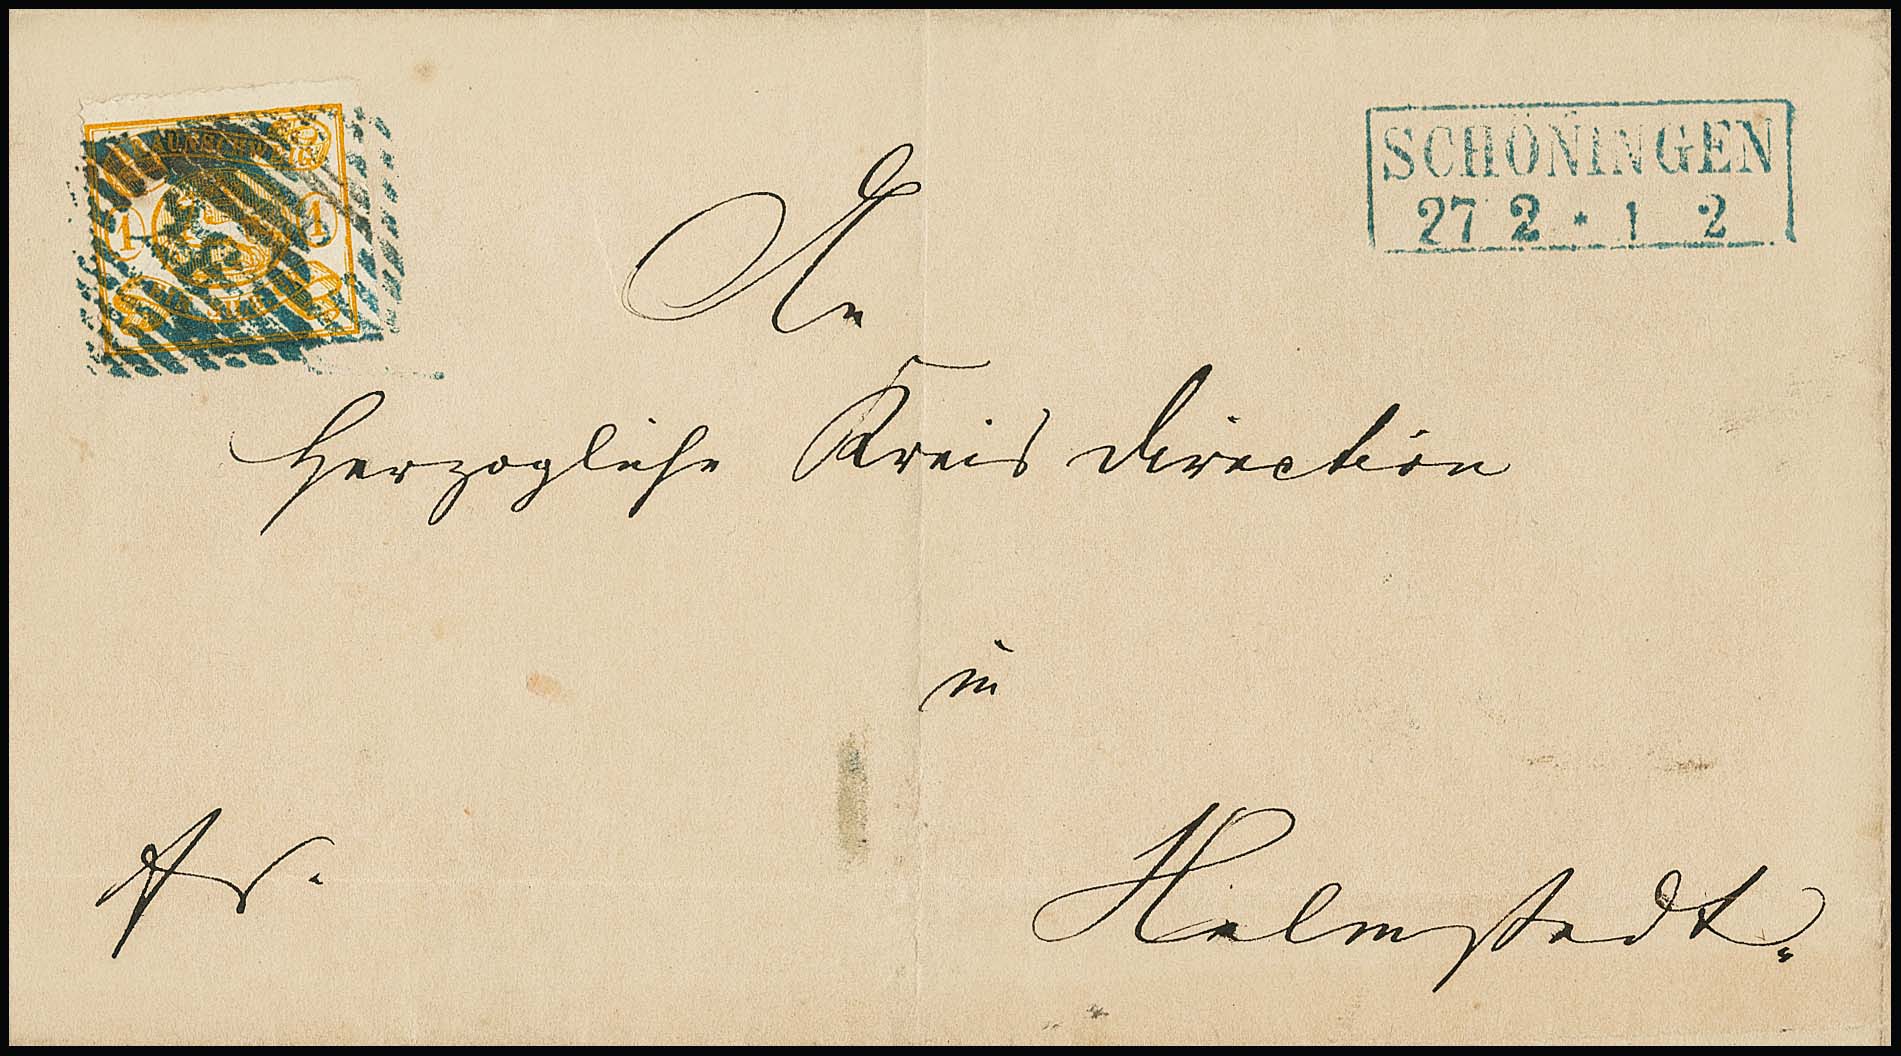 BRAUNSCHWEIG
1 1
SCHÖNINGEN
27 2 * 1 2
An
Herzogliche Kreis Direction
in
Helmstedt.